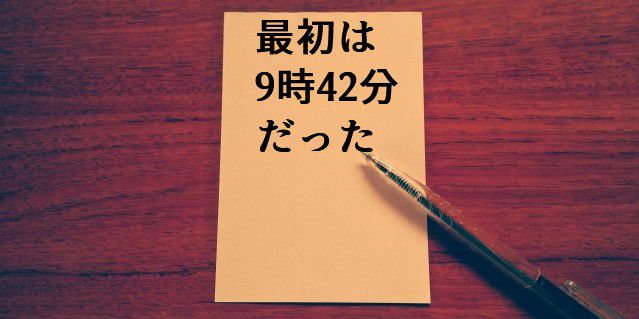 最初は
9時42分
だった